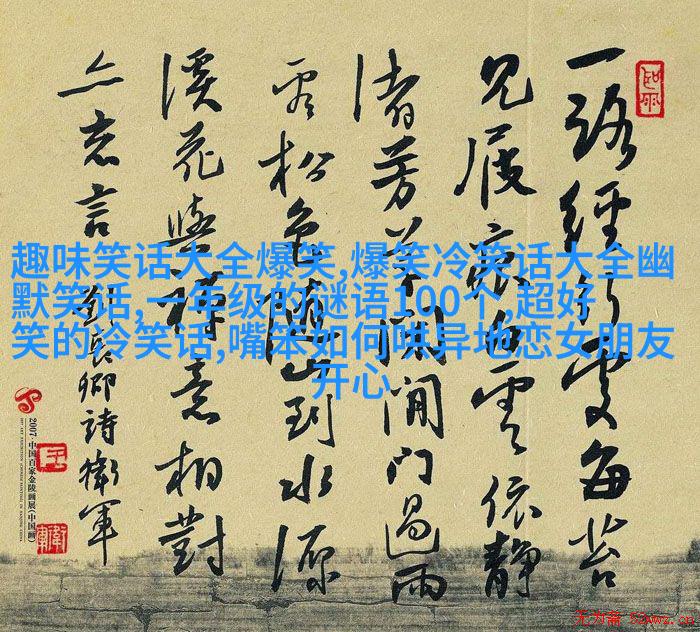 一路經行處每苔
見屐痕白雲依靜
渚芳草閉閒門過雨
看松色隨山到水源
溪花與禪意相對
亦忘言 劉長卿詩 衛軍
趣味笑话大全爆笑,爆笑冷笑话大全幽
默笑话,一年级的谜语100个,超好
笑的冷笑话,嘴笨如何哄异地恋女朋友
开心
2007·中国百家金陵画展(中国画)
无为斋